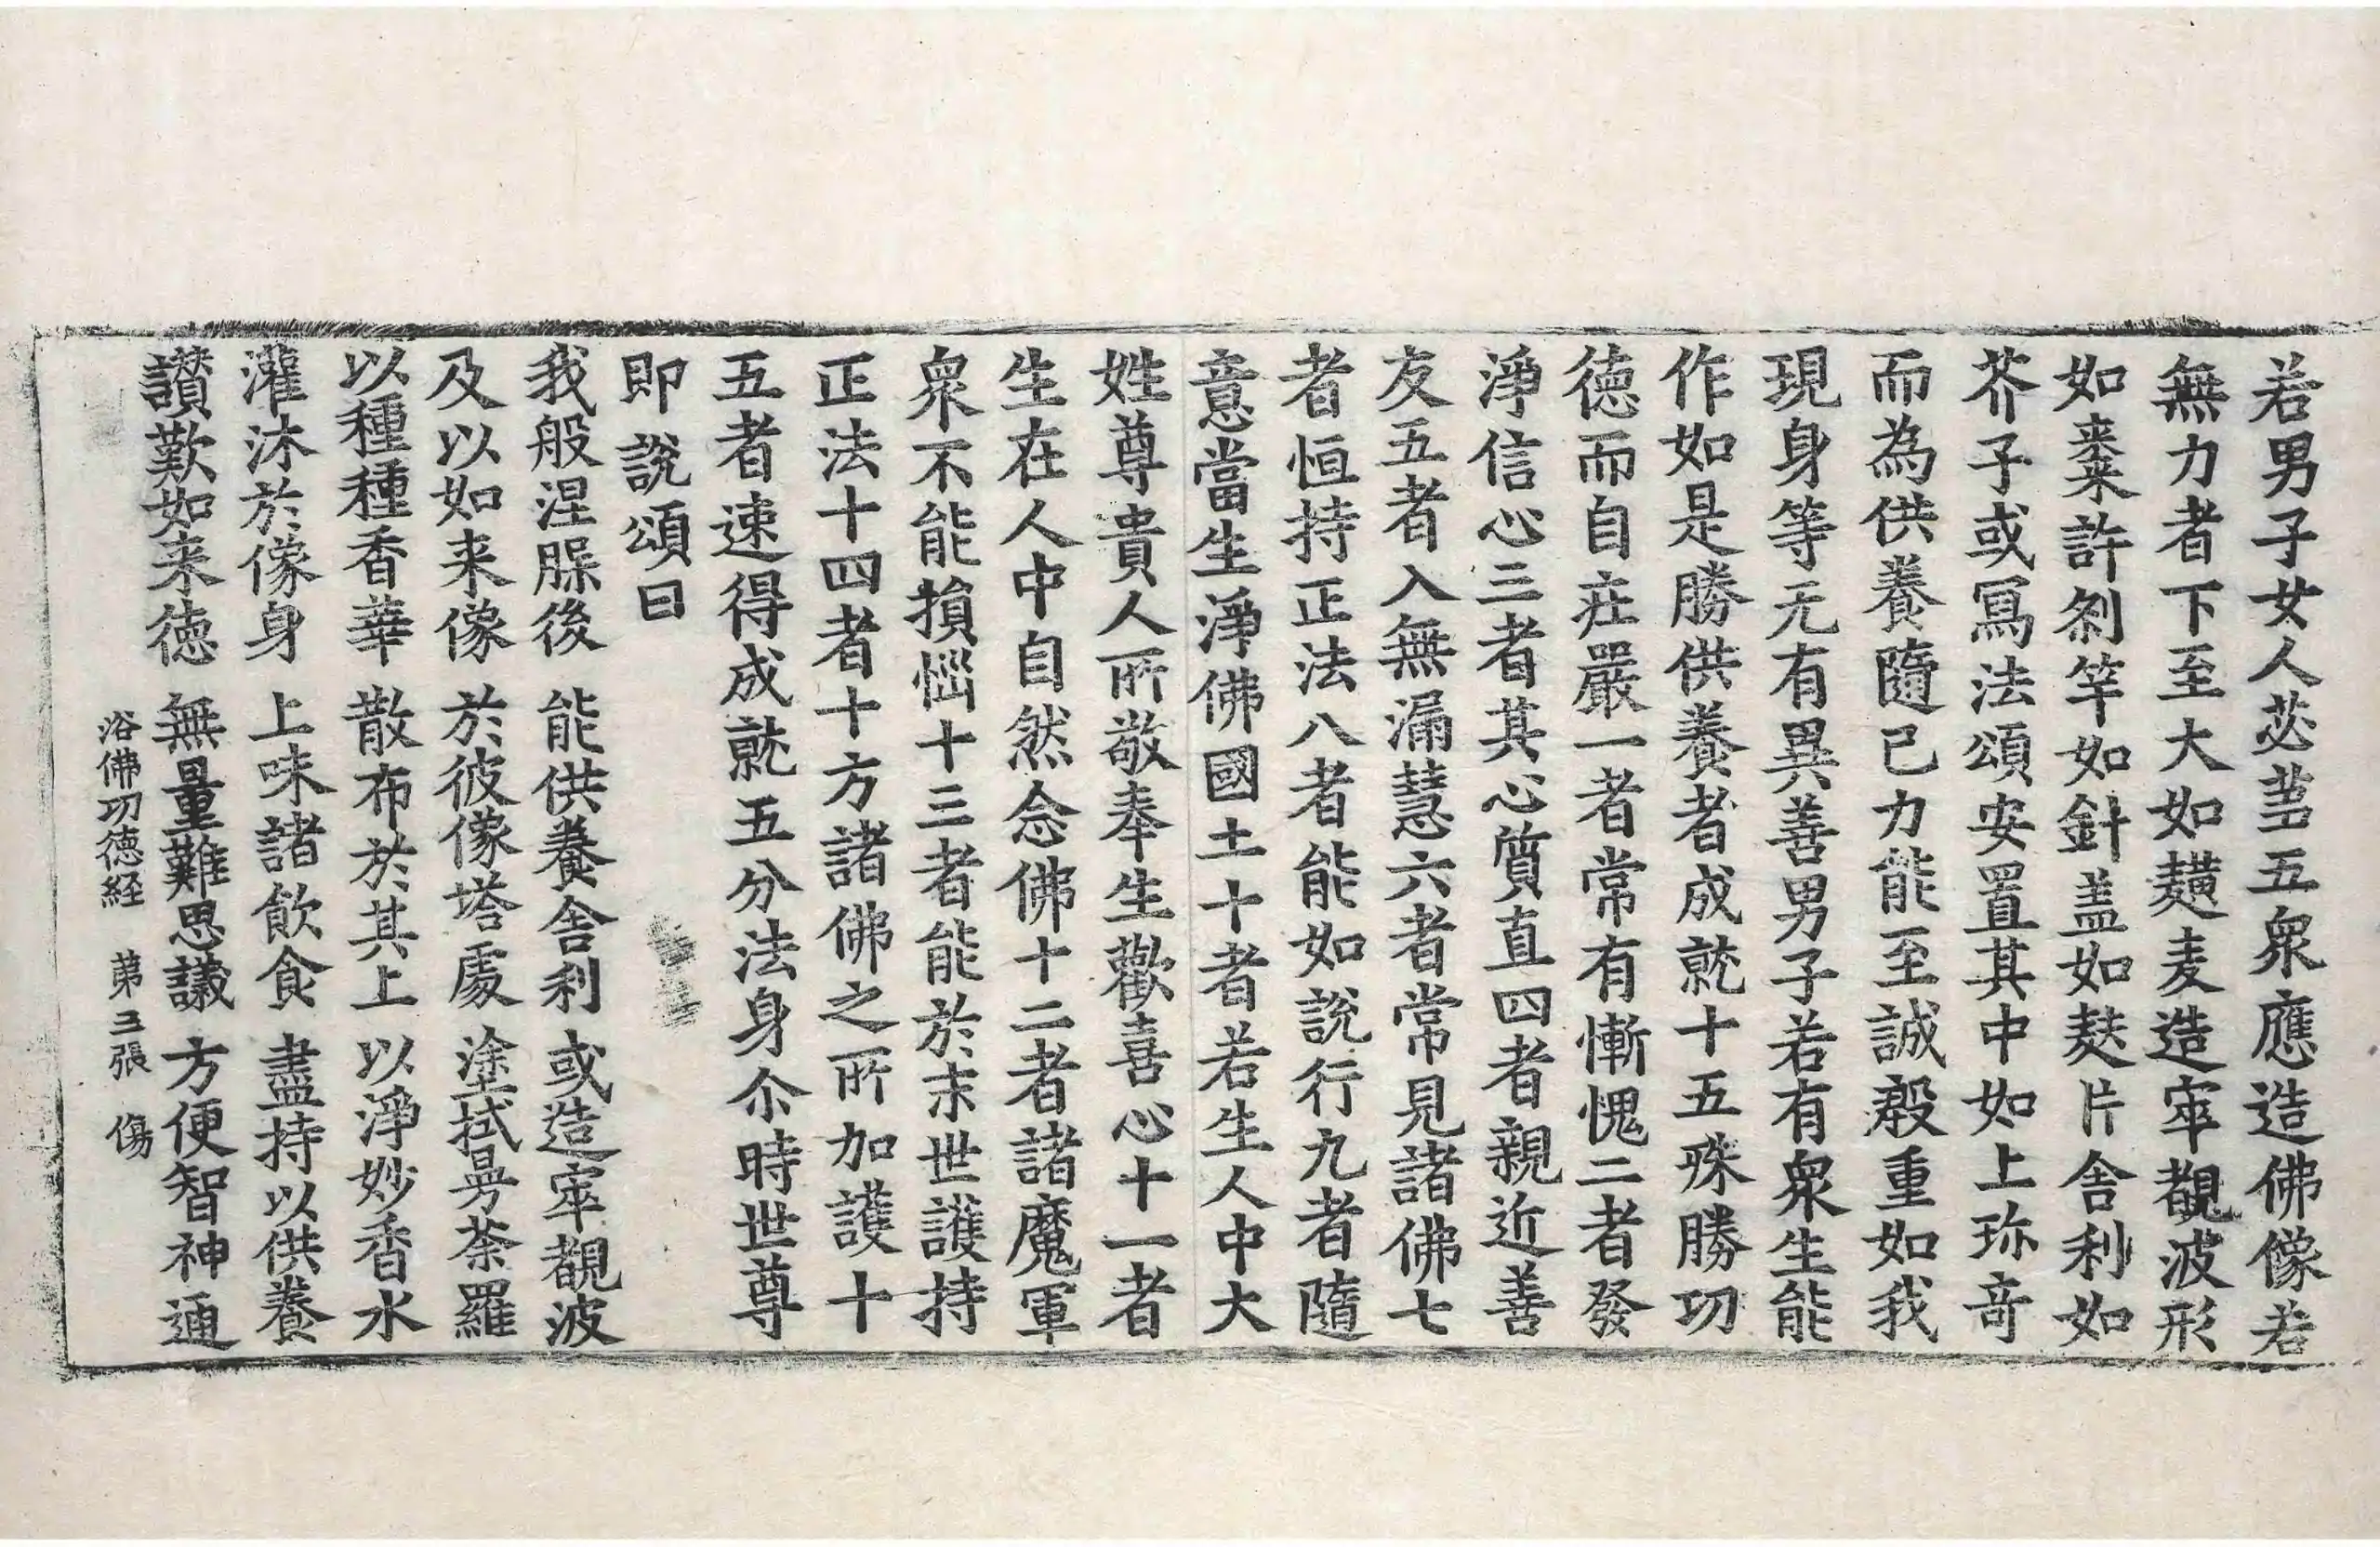 若男子女人苾蒭五衆應造佛像若
無力者下至大如䵃麦造窣覩波形
如棗許刹竿如針盖如麩片舎利如
芥子或寫法頌安置其中如上珎竒
而為供養隨已力能至誠殷重如我
現身等无有異善男子若有衆生能
作如是勝供養者成就十五殊勝功
徳而自莊嚴一者常有慚愧二者發
淨信心三者其心質直四者親近善
友五者入無漏慧六者常見諸佛七
者恒持正法八者能如說行九者隨
意當生淨佛國土十者若生人中大
姓尊貴人所敬奉生歡喜心十一者
生在人中自然念佛十二者諸魔軍
衆不能損惱十三者能於末世護持
正法十四者十方諸佛之所加護十
五者速得成就五分法身尒時世尊
即說頌曰
我般涅槃後　能供養舎利　或造窣覩波
及以如来像　於彼像塔處　塗拭曼荼羅
以種種香華　散布於其上　以淨妙香水
灌沐於像身　上味諸飲食　盡持以供養
讃歎如来徳　無量難思議　方便智神通
浴佛功徳経　苐三張　傷